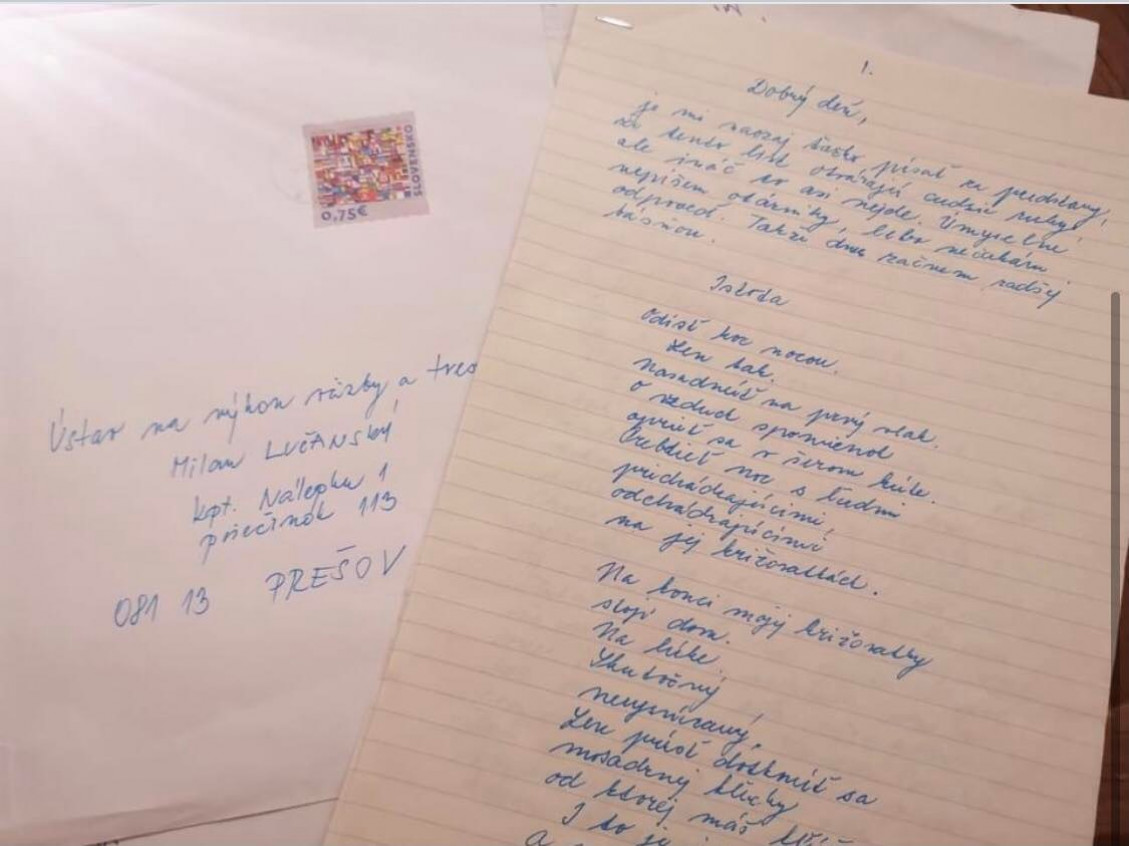 SLOVENSKO
0,75€
Ústav na výkon väzby a tres
Milan LUČANSKÝ
kpt. Nálepku 1
priečinok 113
081 13 PREŠOV
1.
Dobrý deň,
je mi naozaj ťažko písať za predstavy,
že tento list otvárajú cudzie ruky,
ale ináč to asi nejde. Úmyselne
nepíšem otázniky, lebo nečakám
odpoveď. Takže dnes začnem radšej
básňou.
Istota
Odísť hoc nocou.
Len tak.
Nasadnúť na prvý vlak.
o vzduch spomienok
oprieť sa v šerom kúte.
Prebdieť noc s ľuďmi
prichádzajúcimi,
odchádzajúcimi
na jej križovatkách.
Na konci mojej križovatky
stojí dom.
Na lúke.
Skutočný
nevysnívaný,
Len prísť dotknúť sa
mosadznej kľučky
od ktorej máš kľúč
I to je
A